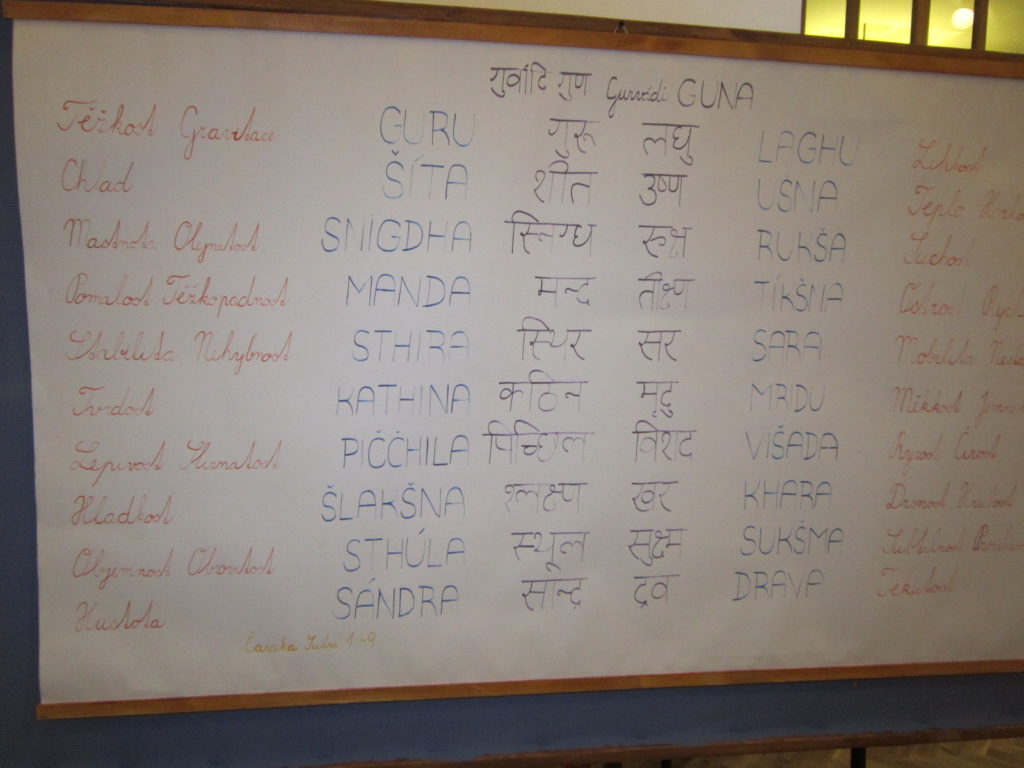 गुर्वादि गुण Gurvádi GUNA
Těžkost Gravitace GURU गुरू लघु LAGHU Lehkost
Chlad ŠÍTA शीत उष्ण UŠNA Teplo Horko
Mastnota Olejnatost SNIGDHA स्निग्ध रुक्ष RUKŠA Suchost
Pomalost Těžkopádnost MANDA मन्द तीक्ष्ण TÍKŠNA Ostrost
Stabilita Nehybnost STHIRA स्थिर सर SARA Mobilita
Tvrdost KATHINA कठिन मृदु MRIDU Měkkost
Lepivost Sliznatost PIČČHILA पिच्छिल विशद VIŠADA Ryzost Čirost
Hladkost ŠLAKŠNA श्लक्ष्ण खर KHARA Drsnost Hrubost
Objemnost Obrovitost STHÚLA स्थूल सुक्ष्म SUKŠMA Subtilnost
Hustota SÁNDRA सान्द्र द्रव DRAVA Tekutost
Čaraka Sútra 1.49